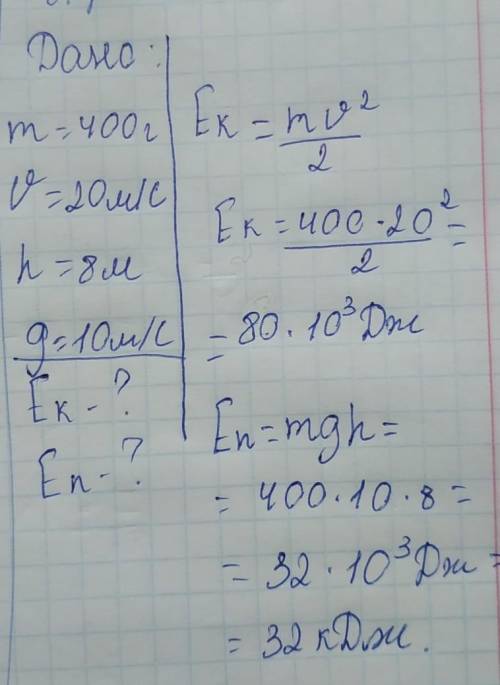 Дано:
m = 400г
v = 20м/с
h = 8м
g = 10м/с
Eк - ?
Eп - ?
Eк = mv²/2
Eк = 400·20²/2 =
= 80·10³ Дж
Eп = mgh =
= 400·10·8 =
= 32·10³ Дж =
= 32 кДж.